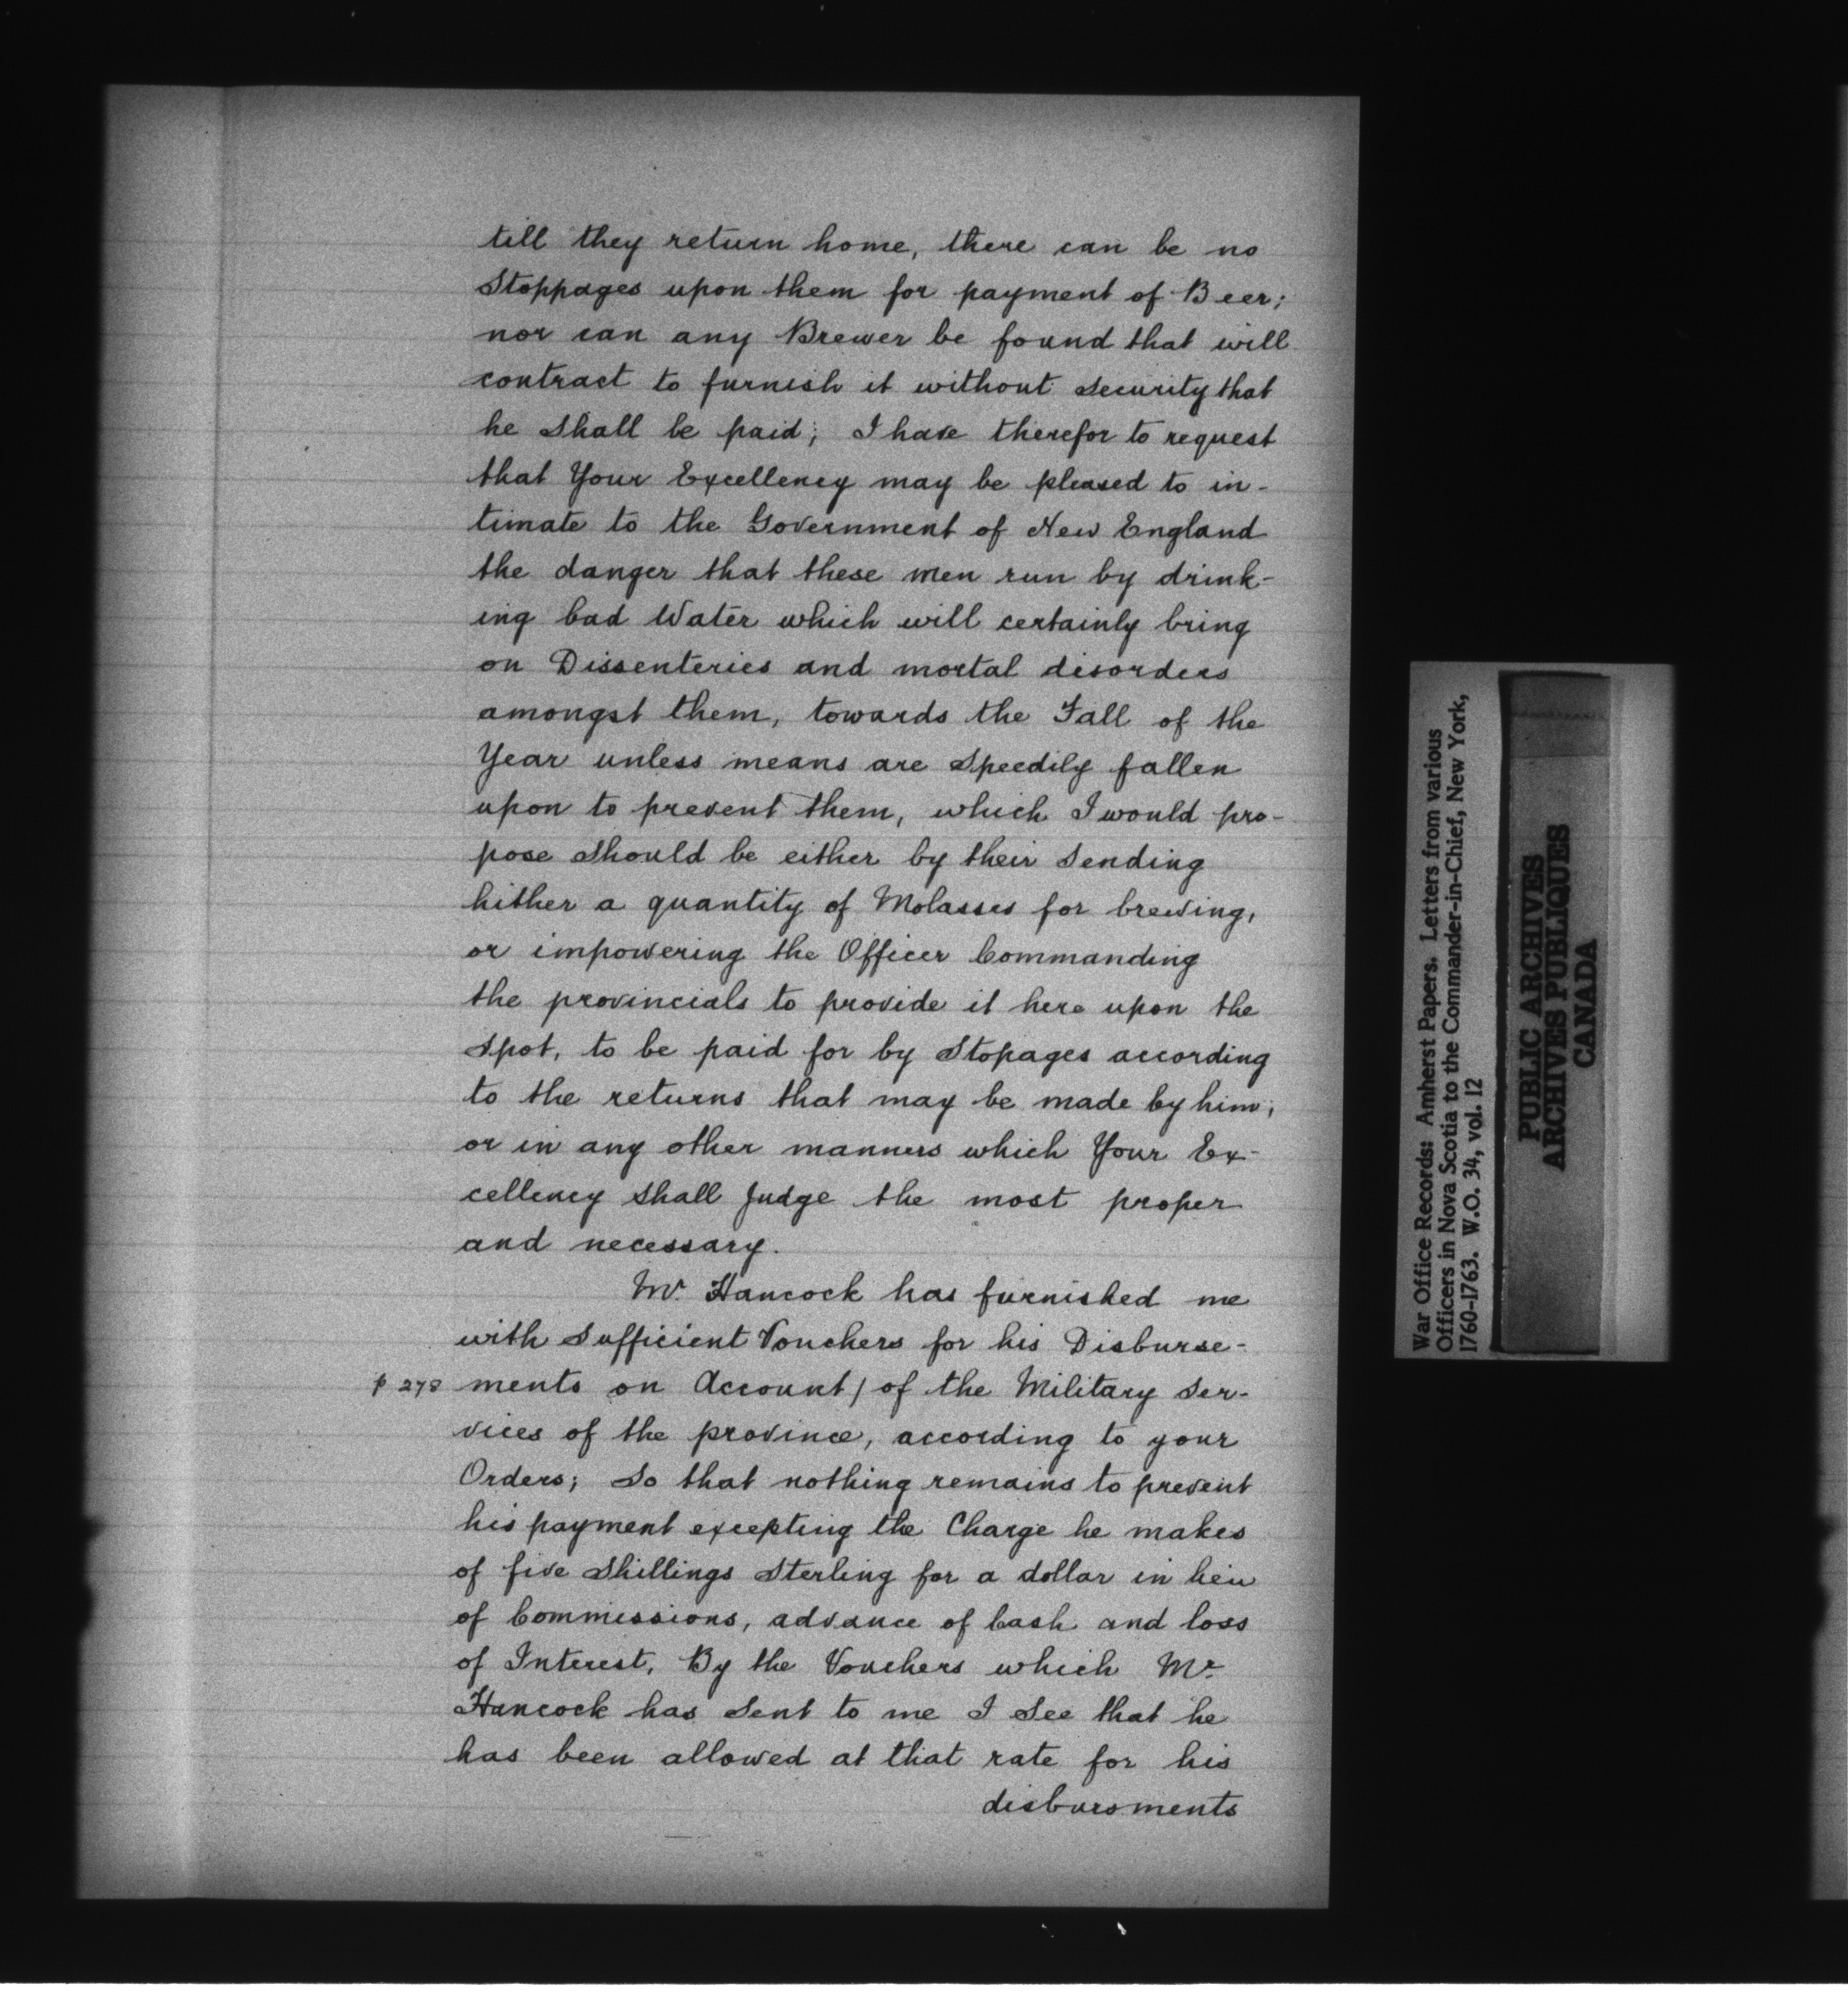 till they return home, there can be no
Stoppages upon them for payment of Beer;
nor can any Brewer be found that will
contract to furnish it without security that
he shall be paid; I have therefor to request
that Your Excellency may be pleased to in-
timate to the Government of New England
the danger that these men run by drink-
ing bad Water which will certainly bring
on Dissenteries and mortal disorders
amongst them, towards the Fall of the
Year unless means are Speedily fallen
upon to prevent them, which I would pro-
pose should be either by their Sending
hither a quantity of Molasses for brewing,
or impowering the Officer Commanding
the provincials to provide it here upon the
Spot, to be paid for by Stopages according
to the returns that may be made by him;
or in any other manners which Your Ex-
cellency shall Judge the most proper
and necessary.
Mr. Hancock has furnished me
with Sufficient Vouchers for his Disburse-
p 278 ments on Account / of the Military Ser-
vices of the province, according to your
Orders; So that nothing remains to prevent
his payment excepting the Charge he makes
of five Shillings Sterling for a dollar in lieu
of Commissions, advance of Cash and loss
of Interest, By the Vouchers which Mr.
Hancock has Sent to me I See that he
has been allowed at that rate for his
disbursments
War Office Records: Amherst Papers. Letters from various
Officers in Nova Scotia to the Commander-in-Chief, New York,
1760-1763. W.O. 34, vol. 12
PUBLIC ARCHIVES
ARCHIVES PUBLIQUES
CANADA